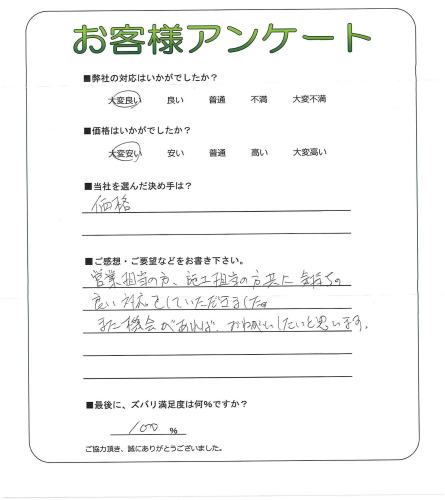 お客様アンケート
■弊社の対応はいかがでしたか?
大変良い 良い 普通 不満 大変不満
■価格はいかがでしたか?
大変安い 安い 普通 高い 大変高い
■当社を選んだ決め手は?
価格
■ご感想・ご要望などをお書き下さい。
営業担当の方、施工担当の方共に気持ちの
良い対応をしていただきました。
また機会があれば、おねがいしたいと思います。
■最後に、ズバリ満足度は何%ですか?
100 %
ご協力頂き、誠にありがとうございました。